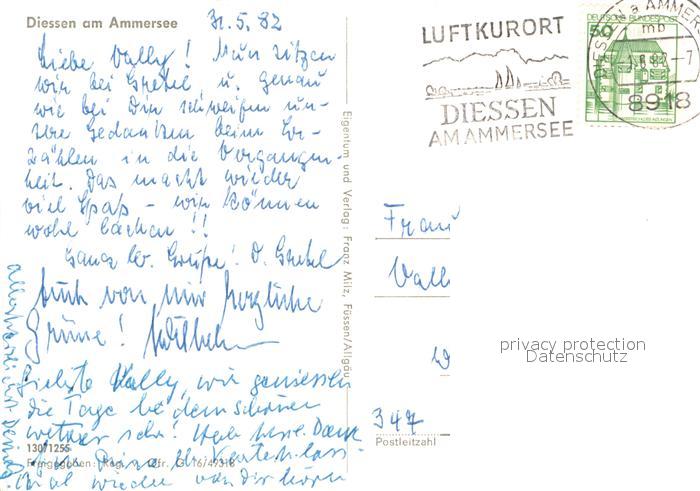 Diessen am Ammersee 31.5.82
Liebe Vally! Nun sitzen
wir bei Gretel u. genau
wie bei Dir schweifen un-
sere Gedanken beim Er-
zählen in die Vergangen-
heit. Das macht wieder
viel Spaß - wir können
wohl lachen!!
Ganz lb. Grüße! D. Gretel
Auch von mir herzliche
Grüße! Wilhelm
Liebste Vally, wir geniessen
die Tage bei dem schönen
Wetter sehr! Hab Dank
13071255
Freigegeben: Reg.
wieder von Dir hören
Eigentum und Verlag: Franz Milz, Füssen/Allgäu
LUFTKURORT
DIESSEN
AM AMMERSEE
DEUTSCHE BUNDESPOST
50
DIESSEN a AMMERSEE
mb
8918
Frau
Vall
privacy protection
Datenschutz
347
Postleitzahl